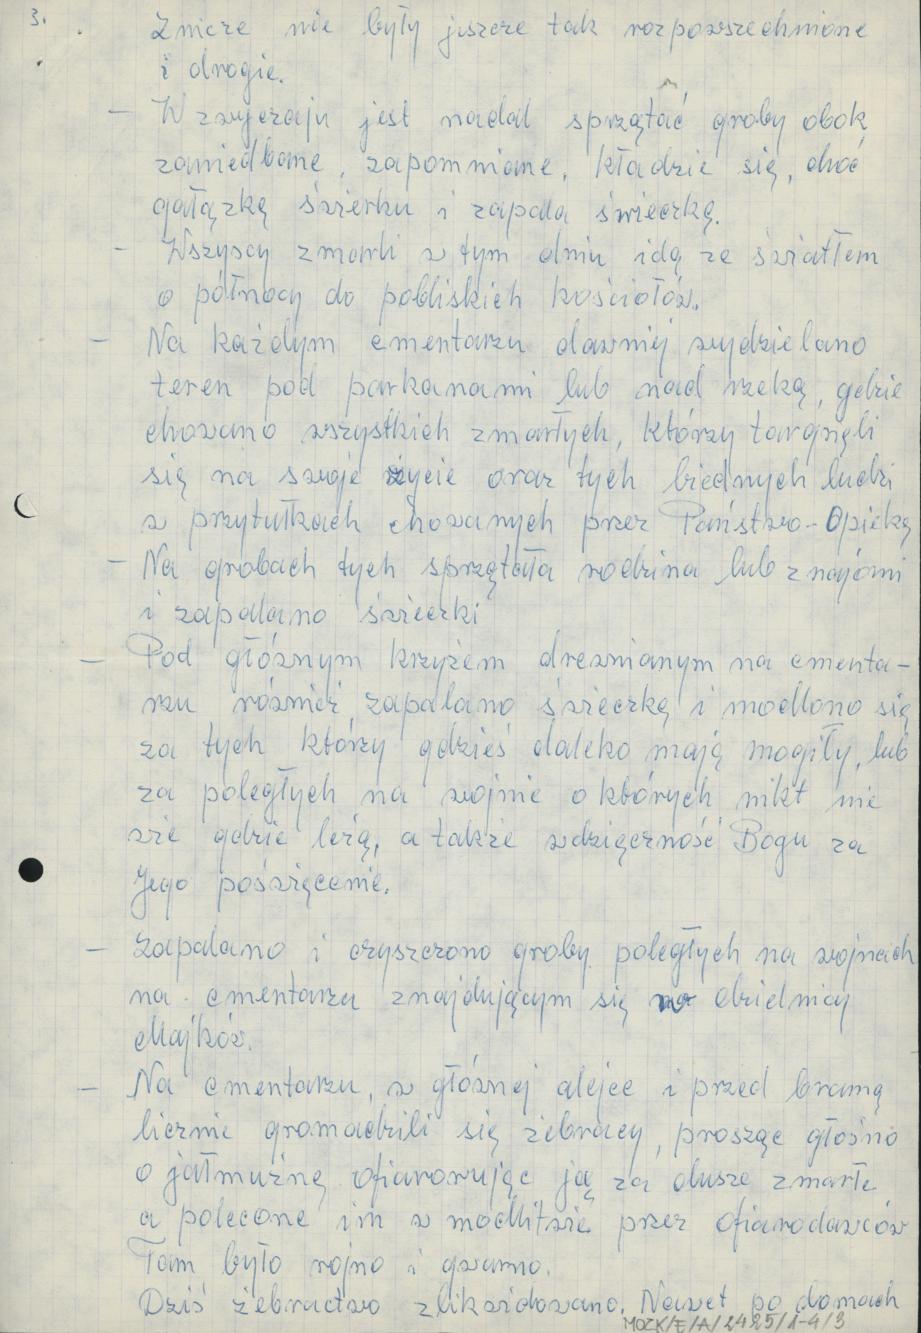 3.
Znicze nie były jeszcze tak rozpowszechnione
i drogie.
- W zwyczaju jest nadal sprzątać groby obok
zaniedbane, zapomniane, kładzie się, choć
gałązkę świerku i zapala świeczkę.
- Wszyscy zmarli w tym dniu idą ze światłem
o północy do pobliskich kościołów.
- Na każdym cmentarzu dawniej wydzielano
teren pod parkanami lub nad rzeką, gdzie
chowano wszystkich zmarłych, którzy targnęli
się na swoje życie oraz tych biednych ludzi
w przytułkach chowanych przez Państwo-Opiekę
- Na grobach tych sprzątała rodzina lub znajomi
i zapalano świeczki
- Pod głównym krzyżem drewnianym na cmenta-
rzu również zapalano świeczkę i modlono się
za tych którzy gdzieś daleko mają mogiły, lub
za poległych na wojnie o których nikt nie
wie gdzie leżą, a także wdzięczność Bogu za
Jego poświęcenie.
- Zapalano i czyszczono groby poległych na wojnach
na cmentarzu znajdującym się w dzielnicy
Majków.
- Na cmentarzu, w głównej alejce i przed bramą
licznie gromadzili się żebracy, prosząc głośno
o jałmużnę ofiarowując ją za dusze zmarłe
a polecone im w modlitwie przez ofiarodawców
Tam było rojno i gwarno.
Dziś żebractwo zlikwidowano. Nawet po domach
MOZK/E/A/2425/1-4/3